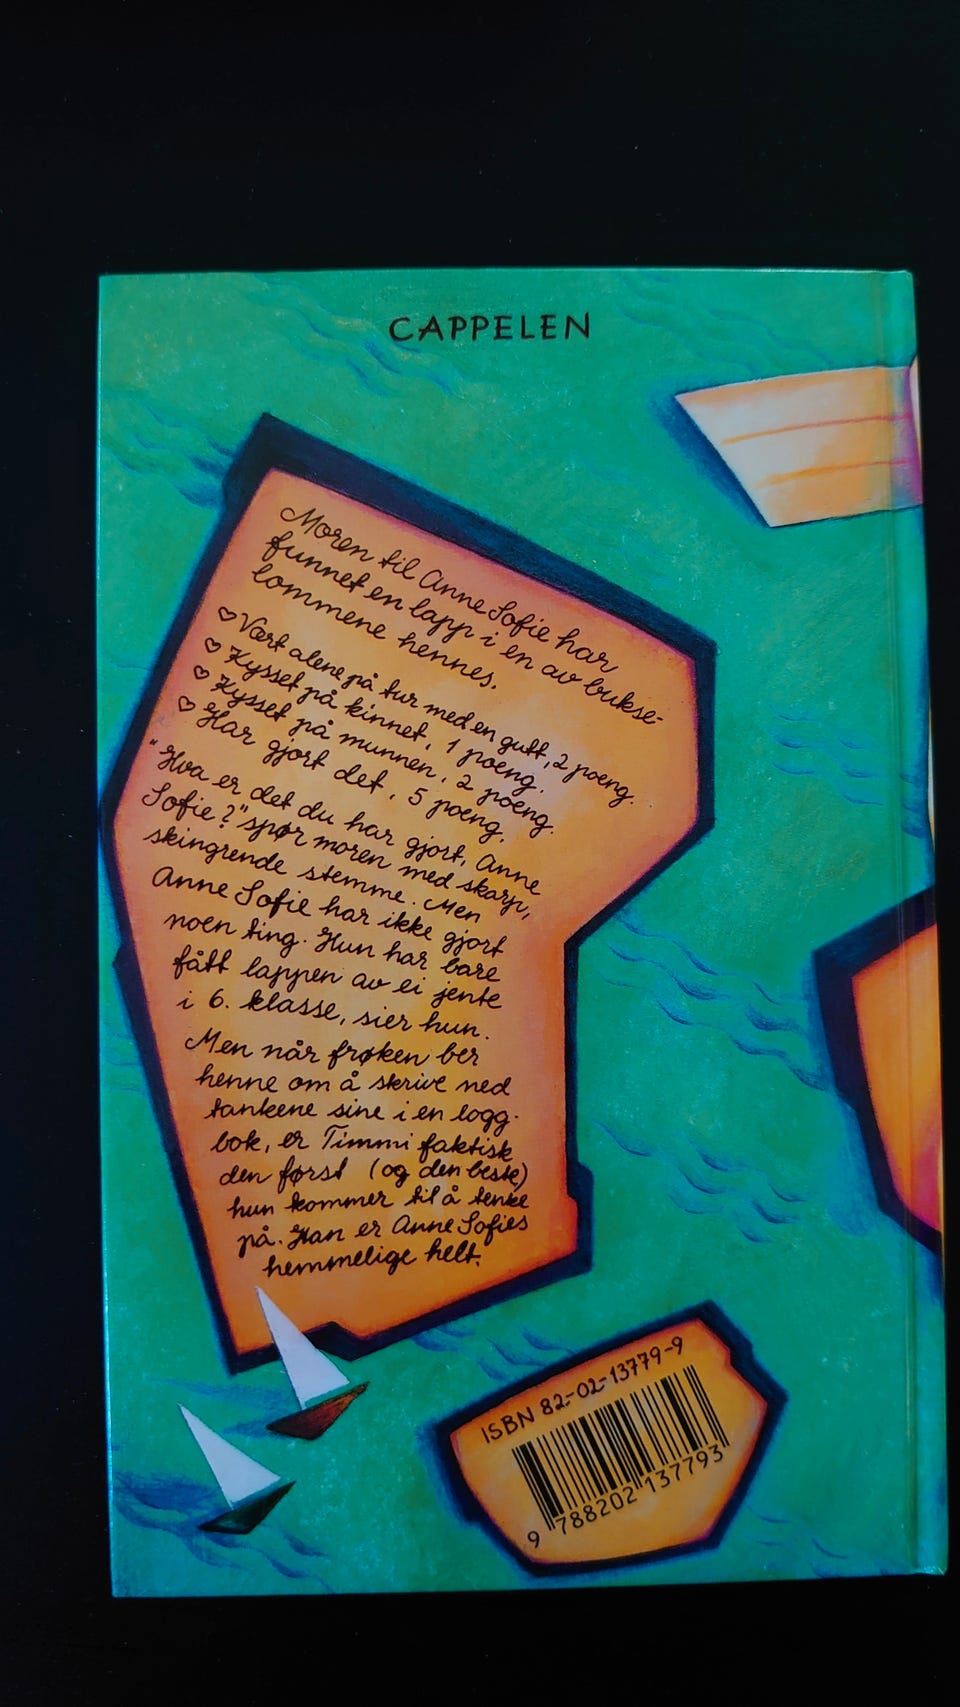 CAPPELEN
Moren til Anne Sofie har
funnet en lapp i en av bukse-
lommene hennes.
♡ Vært alene på tur med en gutt, 2 poeng.
♡ Kysset på kinnet, 1 poeng.
♡ Kysset på munnen, 2 poeng.
♡ Har gjort det, 5 poeng.
"Hva er det du har gjort, Anne
Sofie?" spør moren med skarp,
skingrende stemme. Men
Anne Sofie har ikke gjort
noen ting. Hun har bare
fått lappen av ei jente
i 6. klasse, sier hun.
Men når frøken ber
henne om å skrive ned
tankene sine i en logg-
bok, er Timmi faktisk
den først (og den beste)
hun kommer til å tenke
på. Han er Anne Sofies
hemmelige helt.
ISBN 82-02-13779-9
9 788202 137793